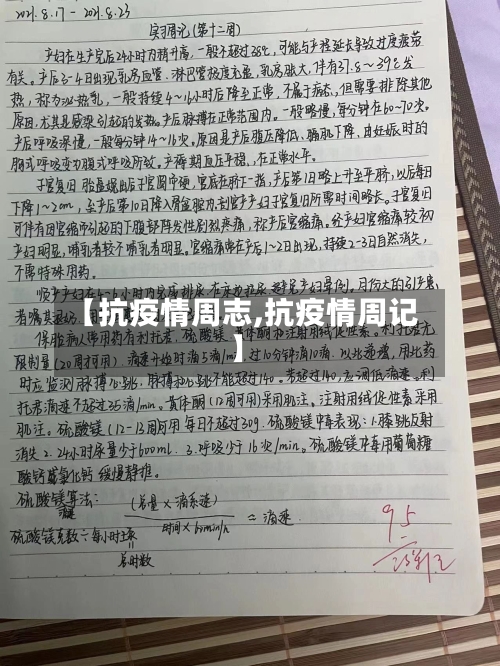 2021.8.17 — 2021.8.23
实习周记(第十二周)
产妇在生产完后24小时内稍升高,一般不超过38℃,可能与产程延长导致过度疲劳
有关。产后3-4日出现乳房血管、淋巴管极度充盈,乳房胀大,伴有37.8~39℃发
热,称为泌乳热,一般持续4~16小时后降至正常,不属于病态,但需要排除其他
原因,尤其是感染引起的发热。产后脉搏在正常范围内。一般略慢,每分钟在60~70次。
产后呼吸深慢,一般每分钟14~16次。原因是产后腹压降低、膈肌下降,由妊娠时的
胸式呼吸变为腹式呼吸所致。产褥期血压平稳,在正常水平。
子宫复旧 胎盘娩出后子宫圆而硬,宫底在脐下一指,产后第1日略上升至平脐,以后每日
下降1~2cm,至产后第10日降入骨盆腔内,剖宫产产妇子宫复旧所需时间略长。子宫复旧
可伴有因宫缩而引起的下腹部阵发性剧烈疼痛,称产后宫缩痛。经产妇宫缩痛较初
产妇明显,哺乳者较不哺乳者明显。宫缩痛常在产后1~2日出现,持续2-3日自然消失,
不需特殊用药。
【抗疫情周志,抗疫情周记
】
保胎病人常用药有利托君、硫酸镁、黄体酮
限制量(20周才可用) 滴速开始时滴5滴/min,过10分钟滴10滴,以此递增,用此药
时应监测脉搏心跳,脉搏和心跳不能超过140。若超过140,应调低滴速。利
托君滴速不超过35滴/min。黄体酮(12周可用)采用肌注。注射用绒促性素采用
肌注。硫酸镁(12-13周可用 每日不超过30g。硫酸镁中毒表现:1.膝跳反射
消失 2.24小时尿量少于600ml. 3.呼吸少于16次/min。硫酸镁中毒用葡萄糖
酸钙或氯化钙 缓慢静推。
硫酸镁算法:
(总量×滴系速)
时间×60min/h
≈滴速.
硫酸镁克数÷每小时
总时数
95